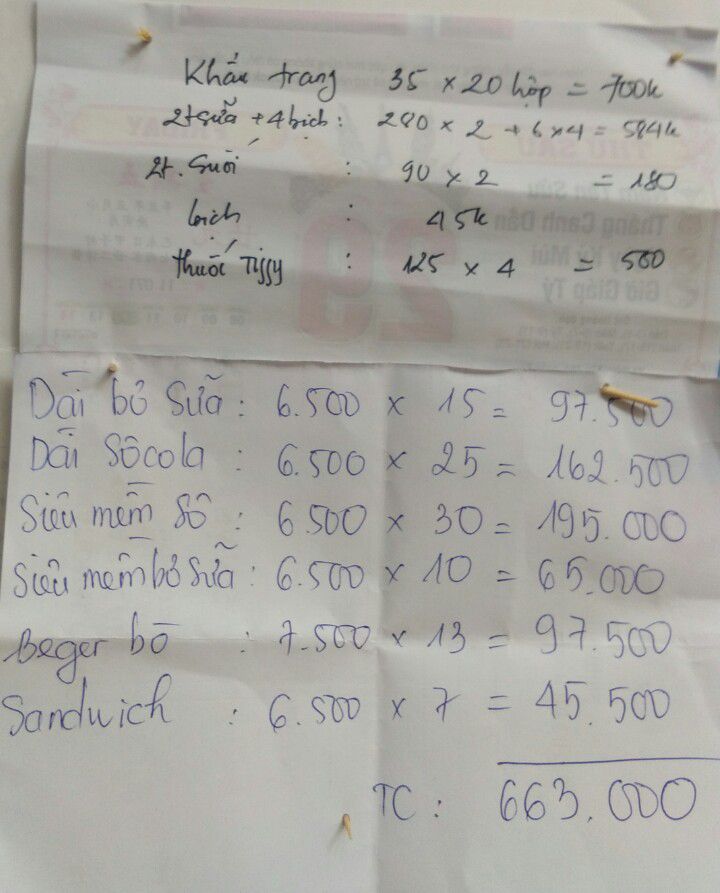 Khẩu trang 35 × 20 hộp = 700k
2t sữa + 4 bịch : 280 × 2 + 6 × 4 = 584k
2t. Suối : 90 × 2 = 180
bịch : 45k
thuốc Tiffy : 125 × 4 = 500
Dài bò sữa : 6.500 × 15 = 97.500
Dài Sôcola : 6.500 × 25 = 162.500
Siêu mềm Sô : 6.500 × 30 = 195.000
Siêu mềm bò sữa : 6.500 × 10 = 65.000
Beger bò : 7.500 × 13 = 97.500
Sandwich : 6.500 × 7 = 45.500
TC : 663.000